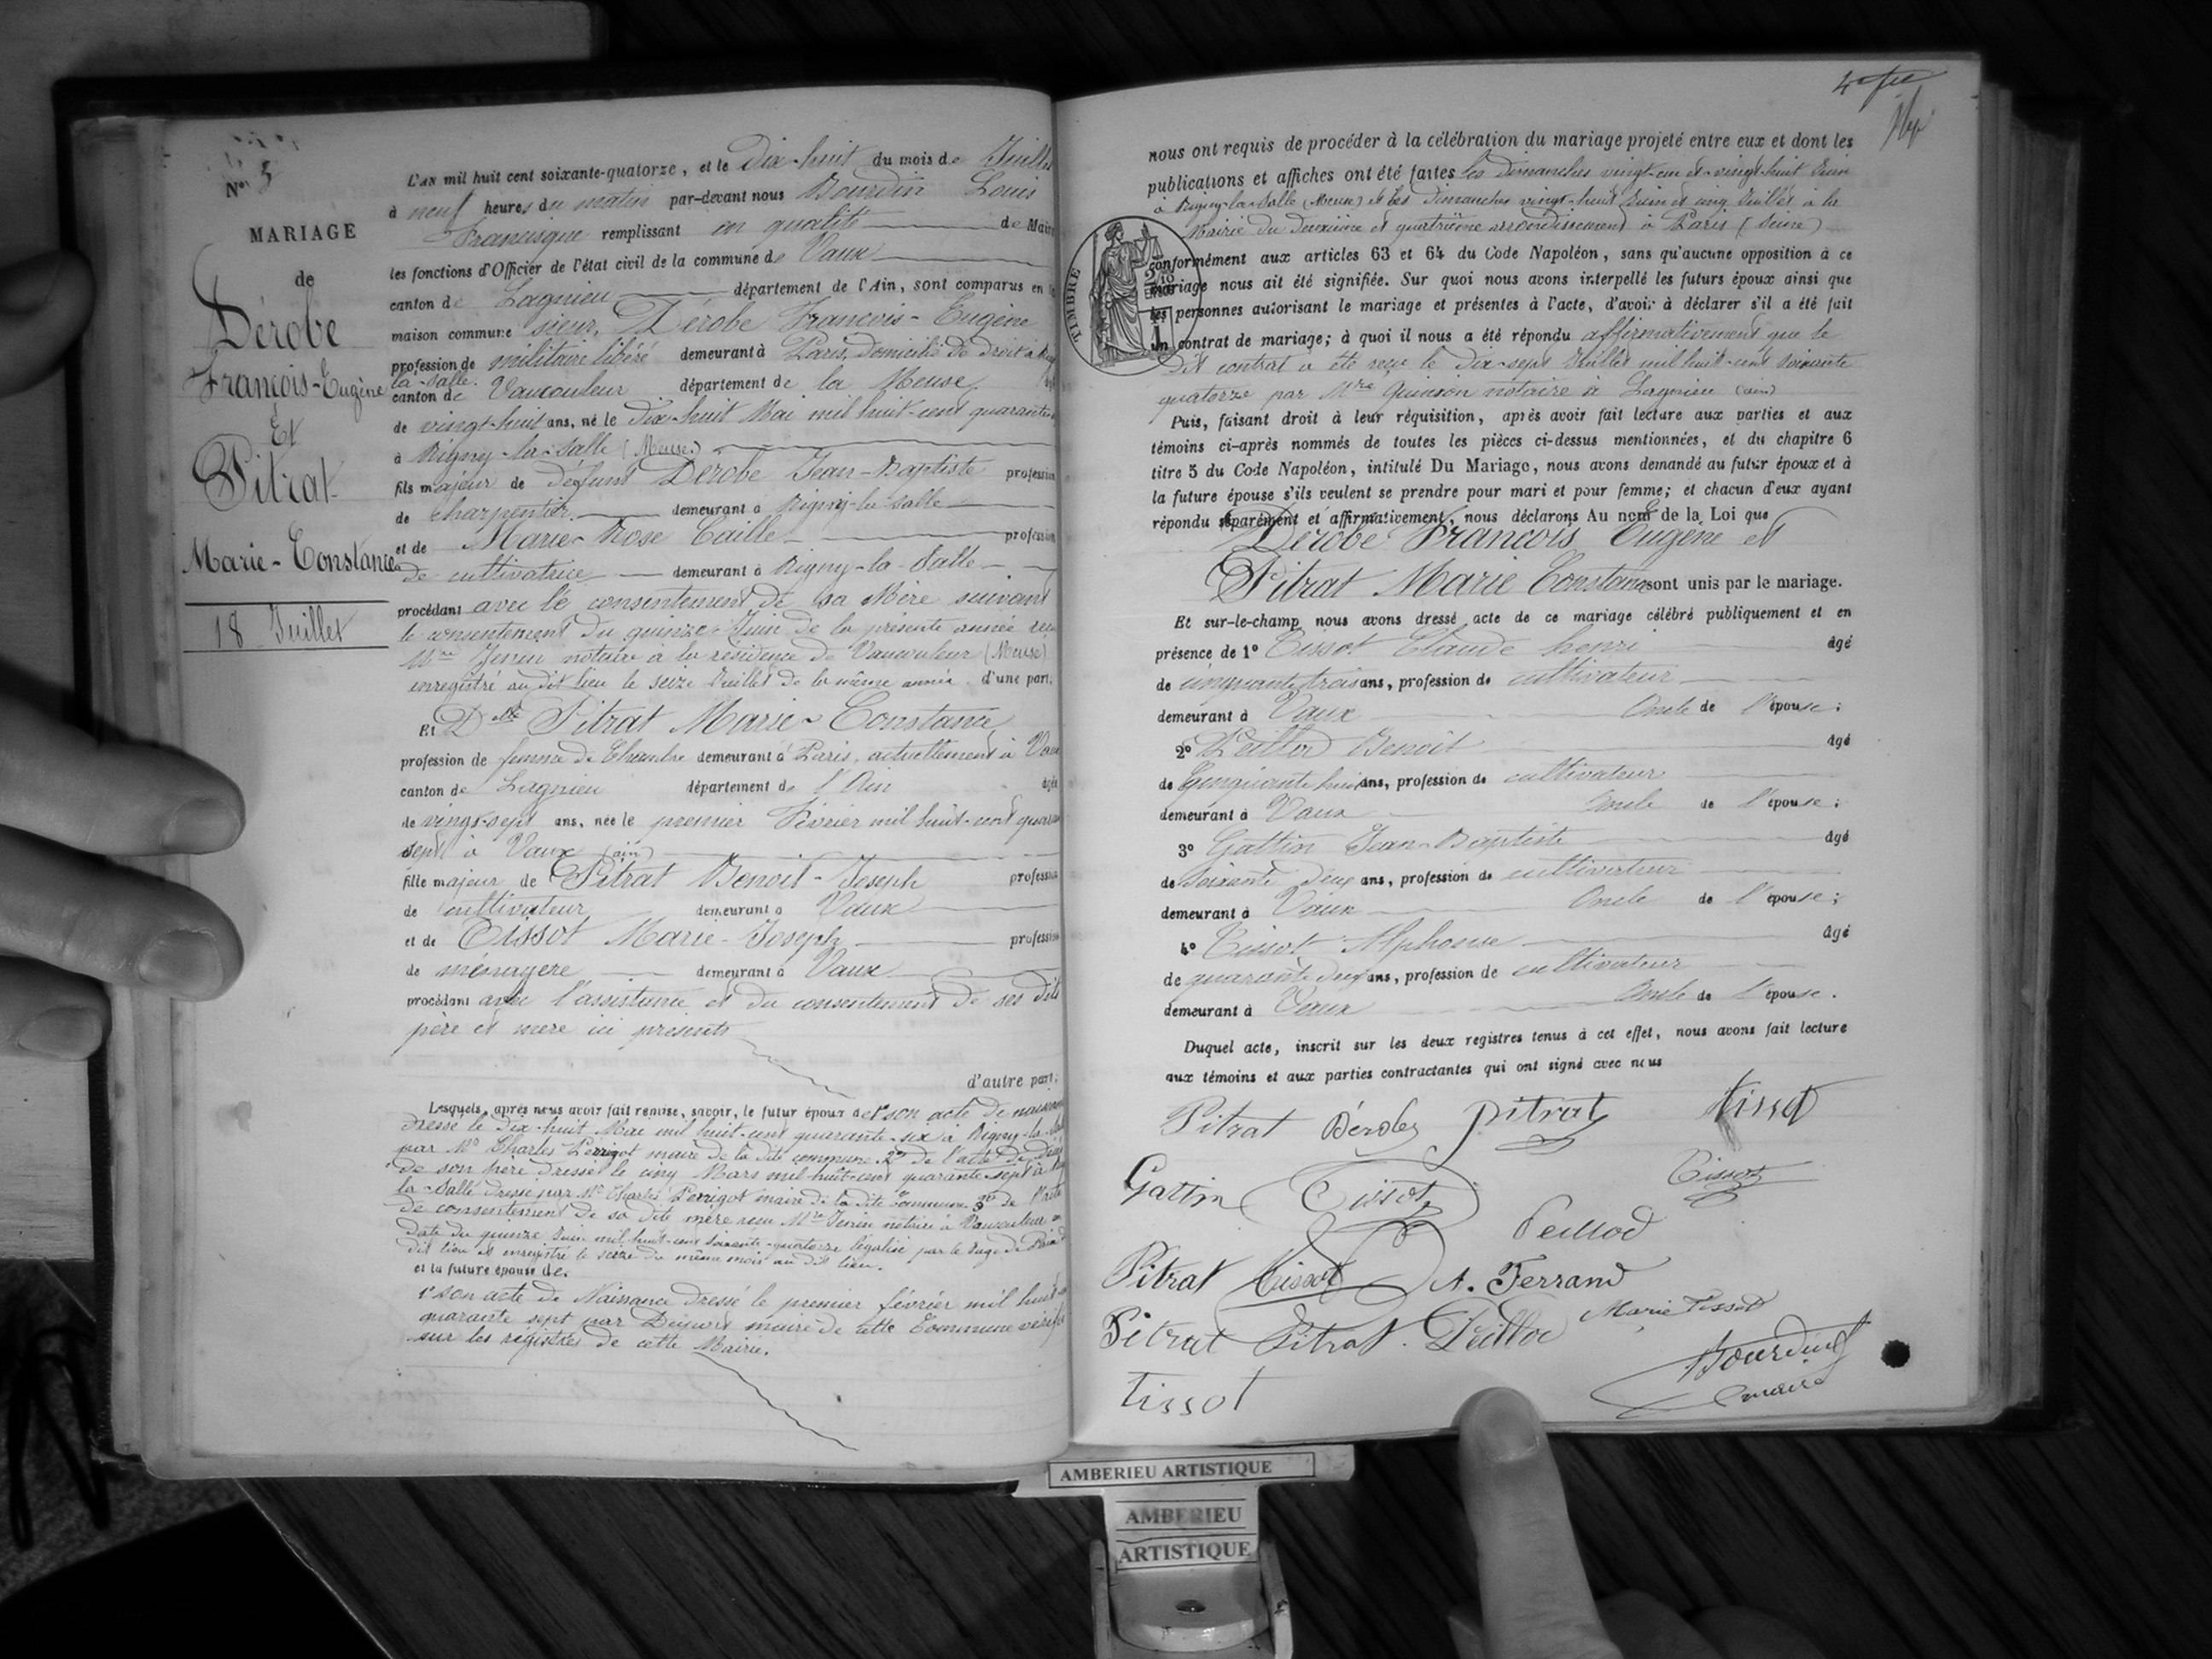 N° 5
MARIAGE
de
Dérobe
François-Eugène
Et
Pitrat
Marie-Constance
18 Juillet
L'an mil huit cent soixante-quatorze, et le Dix-huit du mois de Juillet
à neuf heures du matin par-devant nous Bourdin Louis
Francisque remplissant en qualité de Maire
les fonctions d'Officier de l'état civil de la commune de Vaux
canton de Lagnieu département de l'Ain, sont comparus en la
maison commune sieur, Dérobe François-Eugène
profession de militaire libéré demeurant à Paris, domicilié de droit à
la-Salle. canton de Vaucouleur département de la Meuse,
de vingt-huit ans, né le Dix-huit Mai mil huit-cent quarante
à Rigny-la-Salle (Meuse)
fils majeur de défunt Dérobe Jean-Baptiste profession
de Charpentier demeurant à Rigny-la-Salle
et de Marie-Rose Caille profession
de cultivatrice demeurant à Rigny-la-Salle
procédant avec le consentement de sa Mère suivant
le consentement du quinze Juin de la présente année
notaire à la résidence de Vaucouleur (Meuse)
enregistré au dit lieu le seize Juillet de la même année d'une part,
Et Dlle Pitrat Marie-Constance
profession de femme de Chambre demeurant à Paris, actuellement à Vaux
canton de Lagnieu département de l'Ain âgée
de vingt-sept ans, née le premier Février mil huit-cent
sept à Vaux (ain)
fille majeur de Pitrat Benoit-Joseph profession
de Cultivateur demeurant à Vaux
et de Tissot Marie-Joseph profession
de ménagère demeurant à Vaux
procédant avec l'assistance et du consentement de ses dits
père et mère ici présents
d'autre part;
Lesquels, après nous avoir fait remise, savoir, le futur époux de 1° son acte de naissance
dressé le dix-huit Mai mil huit-cent quarante-six à Rigny-la-Salle
par Mr Charles Perrigot maire de la dite commune 2° de l'acte de décès
de son père dressé le cinq Mars mil-huit-cent quarante-sept à
la-Salle dressé par Mr Charles Perrigot maire de la dite Commune 3° de l'acte
de consentement de sa dite mère reçu Mtre notaire à Vaucouleur
date du quinze Juin mil-huit-cent soixante-quatorze légalisé par le Juge de Paix
dit lieu et enregistré le seize du même mois au dit lieu.
et la future épouse de.
1° son acte de Naissance dressé le premier février mil huit
quarante sept par maire de cette Commune vérifié
sur les registres de cette Mairie.
nous ont requis de procéder à la célébration du mariage projeté entre eux et dont les
publications et affiches ont été faites les Dimanches vingt-un et vingt-huit Juin
à Rigny-la-Salle (Meuse) et les Dimanches vingt-huit Juin et cinq Juillet à la
Mairie du Deuxième et quatrième arrondissement à Paris (Seine)
TIMBRE
conformément aux articles 63 et 64 du Code Napoléon, sans qu'aucune opposition à ce
mariage nous ait été signifiée. Sur quoi nous avons interpellé les futurs époux ainsi que
les personnes autorisant le mariage et présentes à l'acte, d'avoir à déclarer s'il a été fait
un contrat de mariage; à quoi il nous a été répondu affirmativement que le
dit contrat a été reçu le dix-sept Juillet mil huit-cent soixante
quatorze par Mtre Quinson notaire à Lagnieu (ain)
Puis, faisant droit à leur réquisition, après avoir fait lecture aux parties et aux
témoins ci-après nommés de toutes les pièces ci-dessus mentionnées, et du chapitre 6
titre 5 du Code Napoléon, intitulé Du Mariage, nous avons demandé au futur époux et à
la future épouse s'ils veulent se prendre pour mari et pour femme; et chacun d'eux ayant
répondu séparément et affirmativement, nous déclarons Au nom de la Loi que
Dérobe François Eugène et
Pitrat Marie Constance sont unis par le mariage.
Et sur-le-champ nous avons dressé acte de ce mariage célébré publiquement et en
présence de 1° Tissot Claude henri âgé
de cinquante trois ans, profession de cultivateur
demeurant à Vaux Oncle de l'épouse;
2° Peillod Benoit âgé
de Cinquante huit ans, profession de cultivateur
demeurant à Vaux Oncle de l'épouse;
3° Gattin Jean-Baptiste âgé
de Soixante deux ans, profession de cultivateur
demeurant à Vaux Oncle de l'épouse;
4° Tissot Alphonse âgé
de quarante deux ans, profession de cultivateur
demeurant à Vaux Oncle de l'épouse.
Duquel acte, inscrit sur les deux registres tenus à cet effet, nous avons fait lecture
aux témoins et aux parties contractantes qui ont signé avec nous
Pitrat Dérobe pitrat tissot
Gattin Tissot Tissot
Peillod
Pitrat Tissot A. Ferrand
Pitrat Pitrat Peillod Marie Tissot
Tissot Bourdin
maire
AMBERIEU ARTISTIQUE
AMBERIEU
ARTISTIQUE